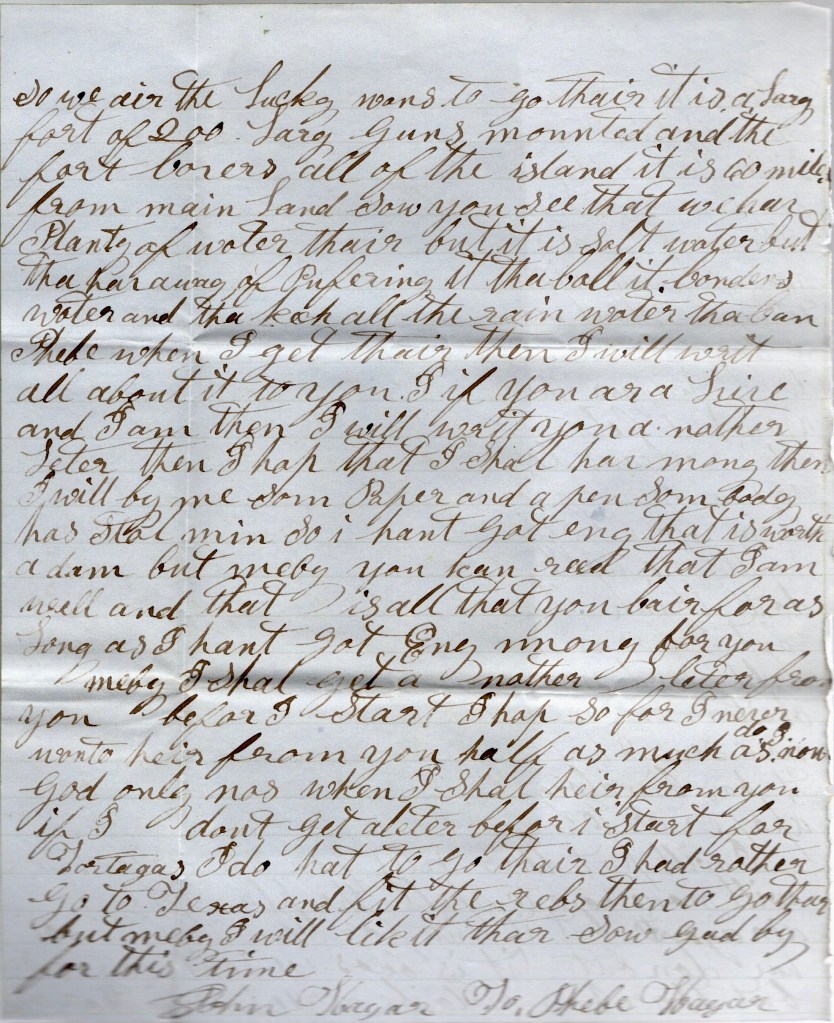 so we air the Lucky wons to go thair it is a Larg
fort of 200 Larg Guns mounted and the
fort covers all of the island it is 60 miles
from main Land sow you see that we har
Planty of woter thair but it is salt water but
tha har a way of Pufering it tha boll it
woter and tha kech all the rain woter tha can
Phebe when I get thair then I will writ
all about it to you. I if you ar a Live
and I am then I will writ you a nather
Leter then I hop that I shal har mony then
I will by me som Paper and a pen som body
has stol min so i hant got eny that is worth
a dam but meby you kan read that I am
well and that is all that you cair for as
Long as I hant got Eny mony for you
meby I shal get a nother leter from
you befor I start I hop so for I never
wonto heir from you half as much as I do now
God only nos when I shal heir from you
if I dont get a leter befor i start for
Tortagas I do hat to go thair I had rother
Go to Texas and fit the rebs then to go thar
but meby I will lik it thar sow gud by
for this time
John Wagar To, Phebe Wagar